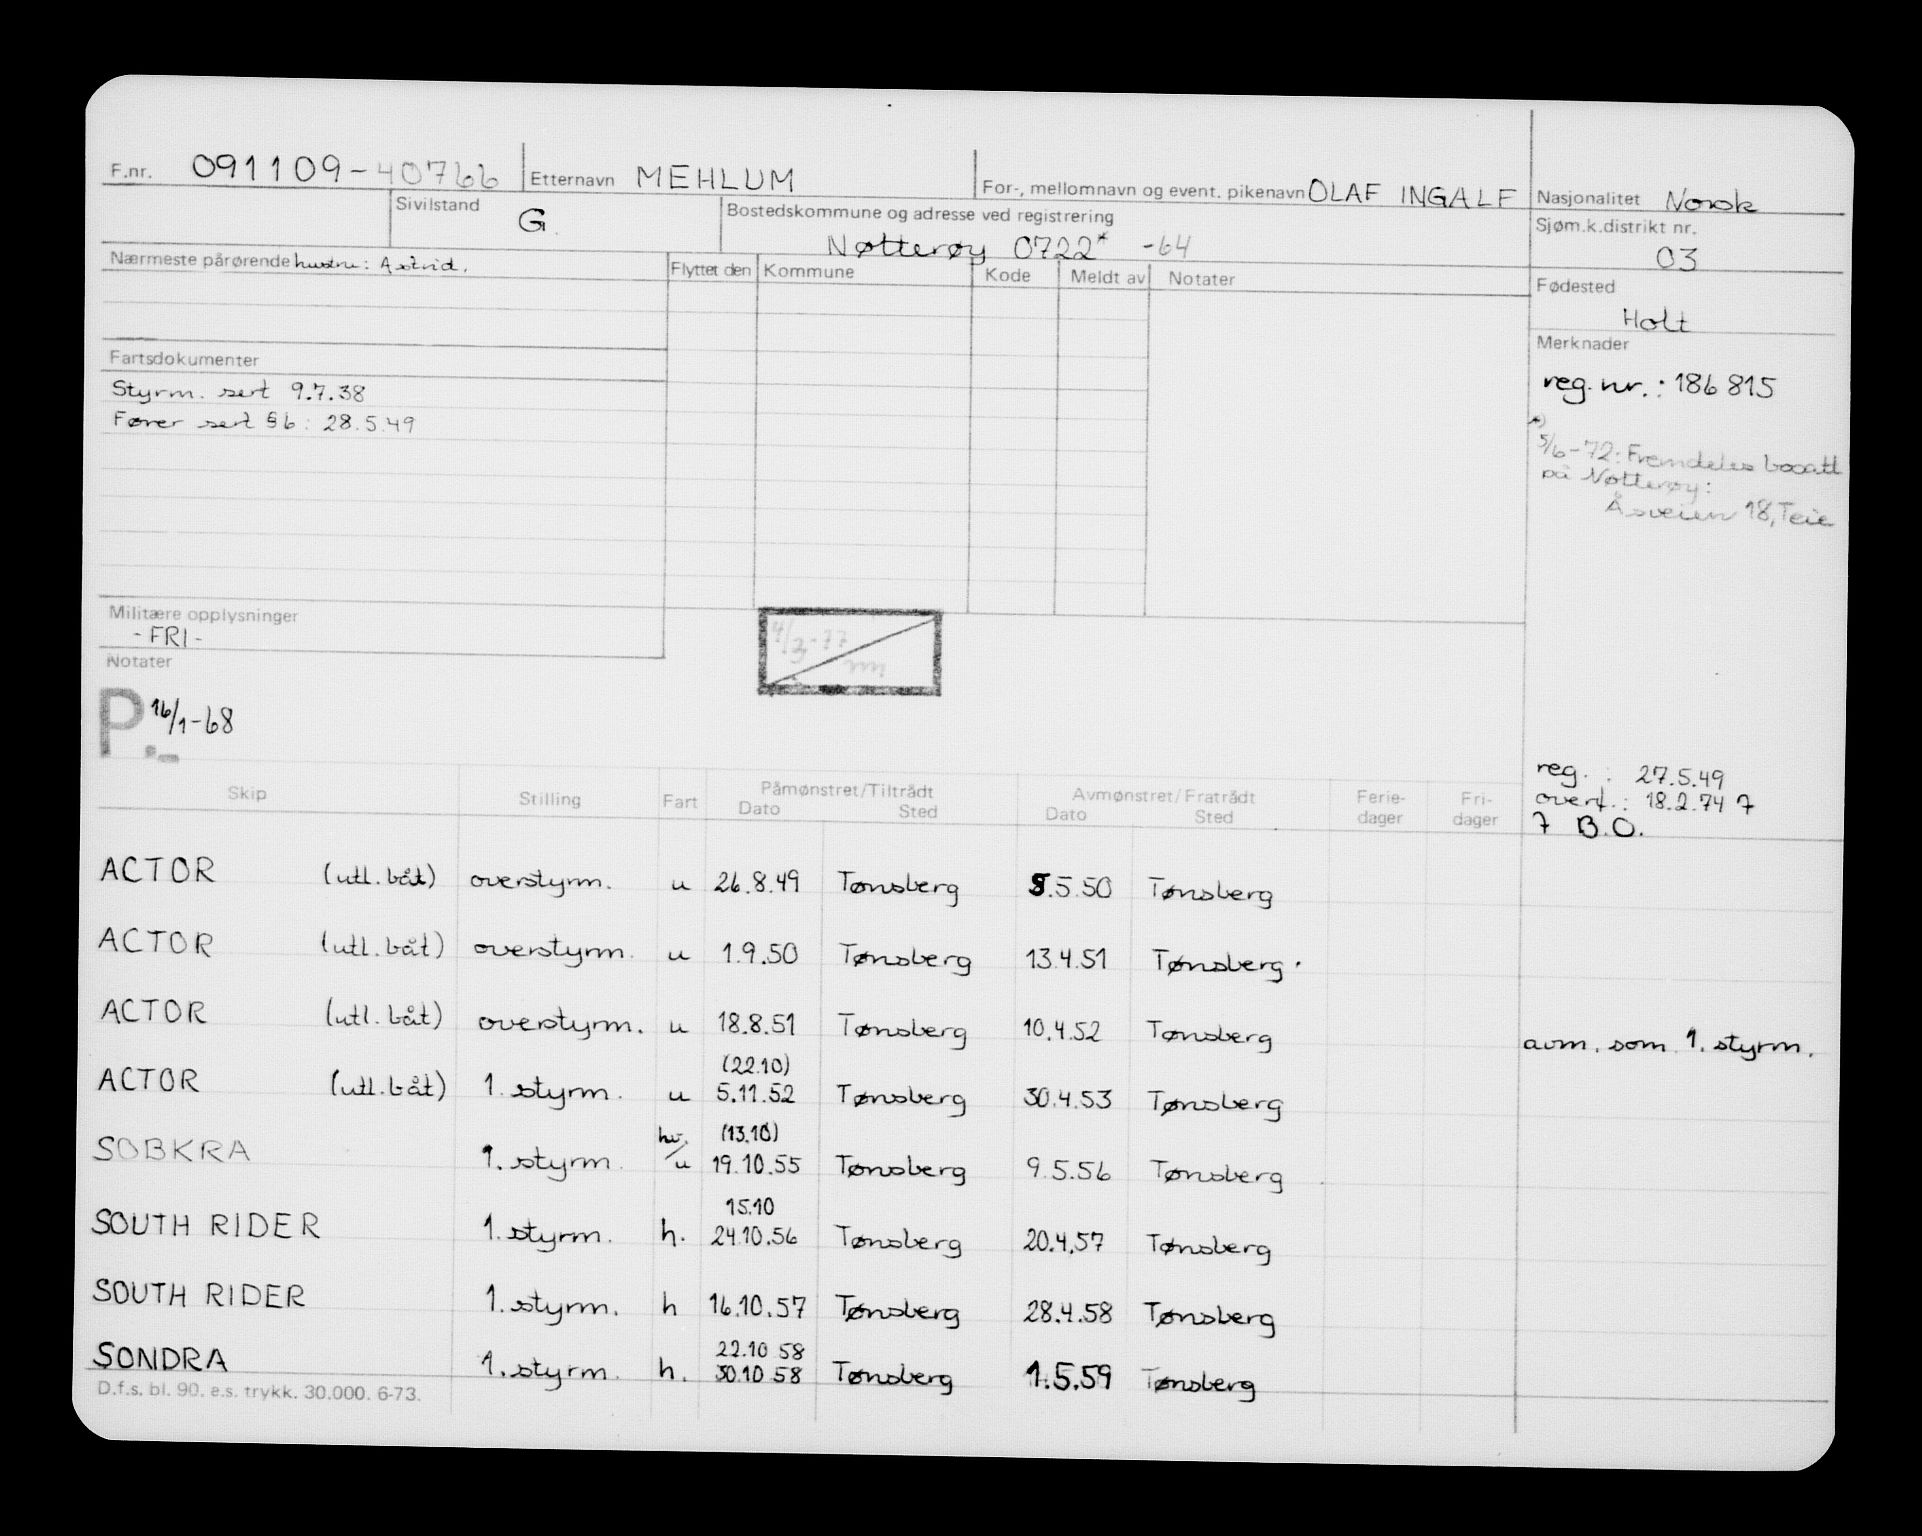 F.nr. 091109-40766 Etternavn MEHLUM For-, mellomnavn og event. pikenavn OLAF INGALF Nasjonalitet Norsk
Sivilstand G. Bostedskommune og adresse ved registrering Sjøm.k.distrikt nr.
Nøtterøy 0722* -64 03
Nærmeste pårørende hustru: Astrid. Flyttet den Kommune Kode Meldt av Notater Fødested
Holt
Fartsdokumenter Merknader
Styrm. sert 9.7.38 reg. nr.: 186 815
Fører sert §6: 28.5.49
*)
5/6-72: Fremdeles bosatt
på Nøtterøy:
Åsveien 18, Teie
Militære opplysninger
-FRI-
4/3-77
Notater
P.- 16/1-68
reg. : 27.5.49
overf.: 18.2.74 7
7 B.O.
Skip Stilling Fart Påmønstret/Tiltrådt Avmønstret/Fratrådt Ferie- Fri-
Dato Sted Dato Sted dager dager
ACTOR (utl. båt) overstyrm. u 26.8.49 Tønsberg 8.5.50 Tønsberg
ACTOR (utl. båt) overstyrm. u 1.9.50 Tønsberg 13.4.51 Tønsberg.
ACTOR (utl. båt) overstyrm. u 18.8.51 Tønsberg 10.4.52 Tønsberg avm. som 1. styrm.
(22.10)
ACTOR (utl. båt) 1. styrm. u 5.11.52 Tønsberg 30.4.53 Tønsberg
hv. (13.10)
SOBKRA 1. styrm. /u 19.10.55 Tønsberg 9.5.56 Tønsberg
15.10
SOUTH RIDER 1. styrm. h. 24.10.56 Tønsberg 20.4.57 Tønsberg
SOUTH RIDER 1. styrm. h 16.10.57 Tønsberg 28.4.58 Tønsberg
22.10 58
SONDRA 1. styrm. h. 30.10 58 Tønsberg 1.5.59 Tønsberg
D.f.s. bl. 90. e.s. trykk. 30.000. 6-73.